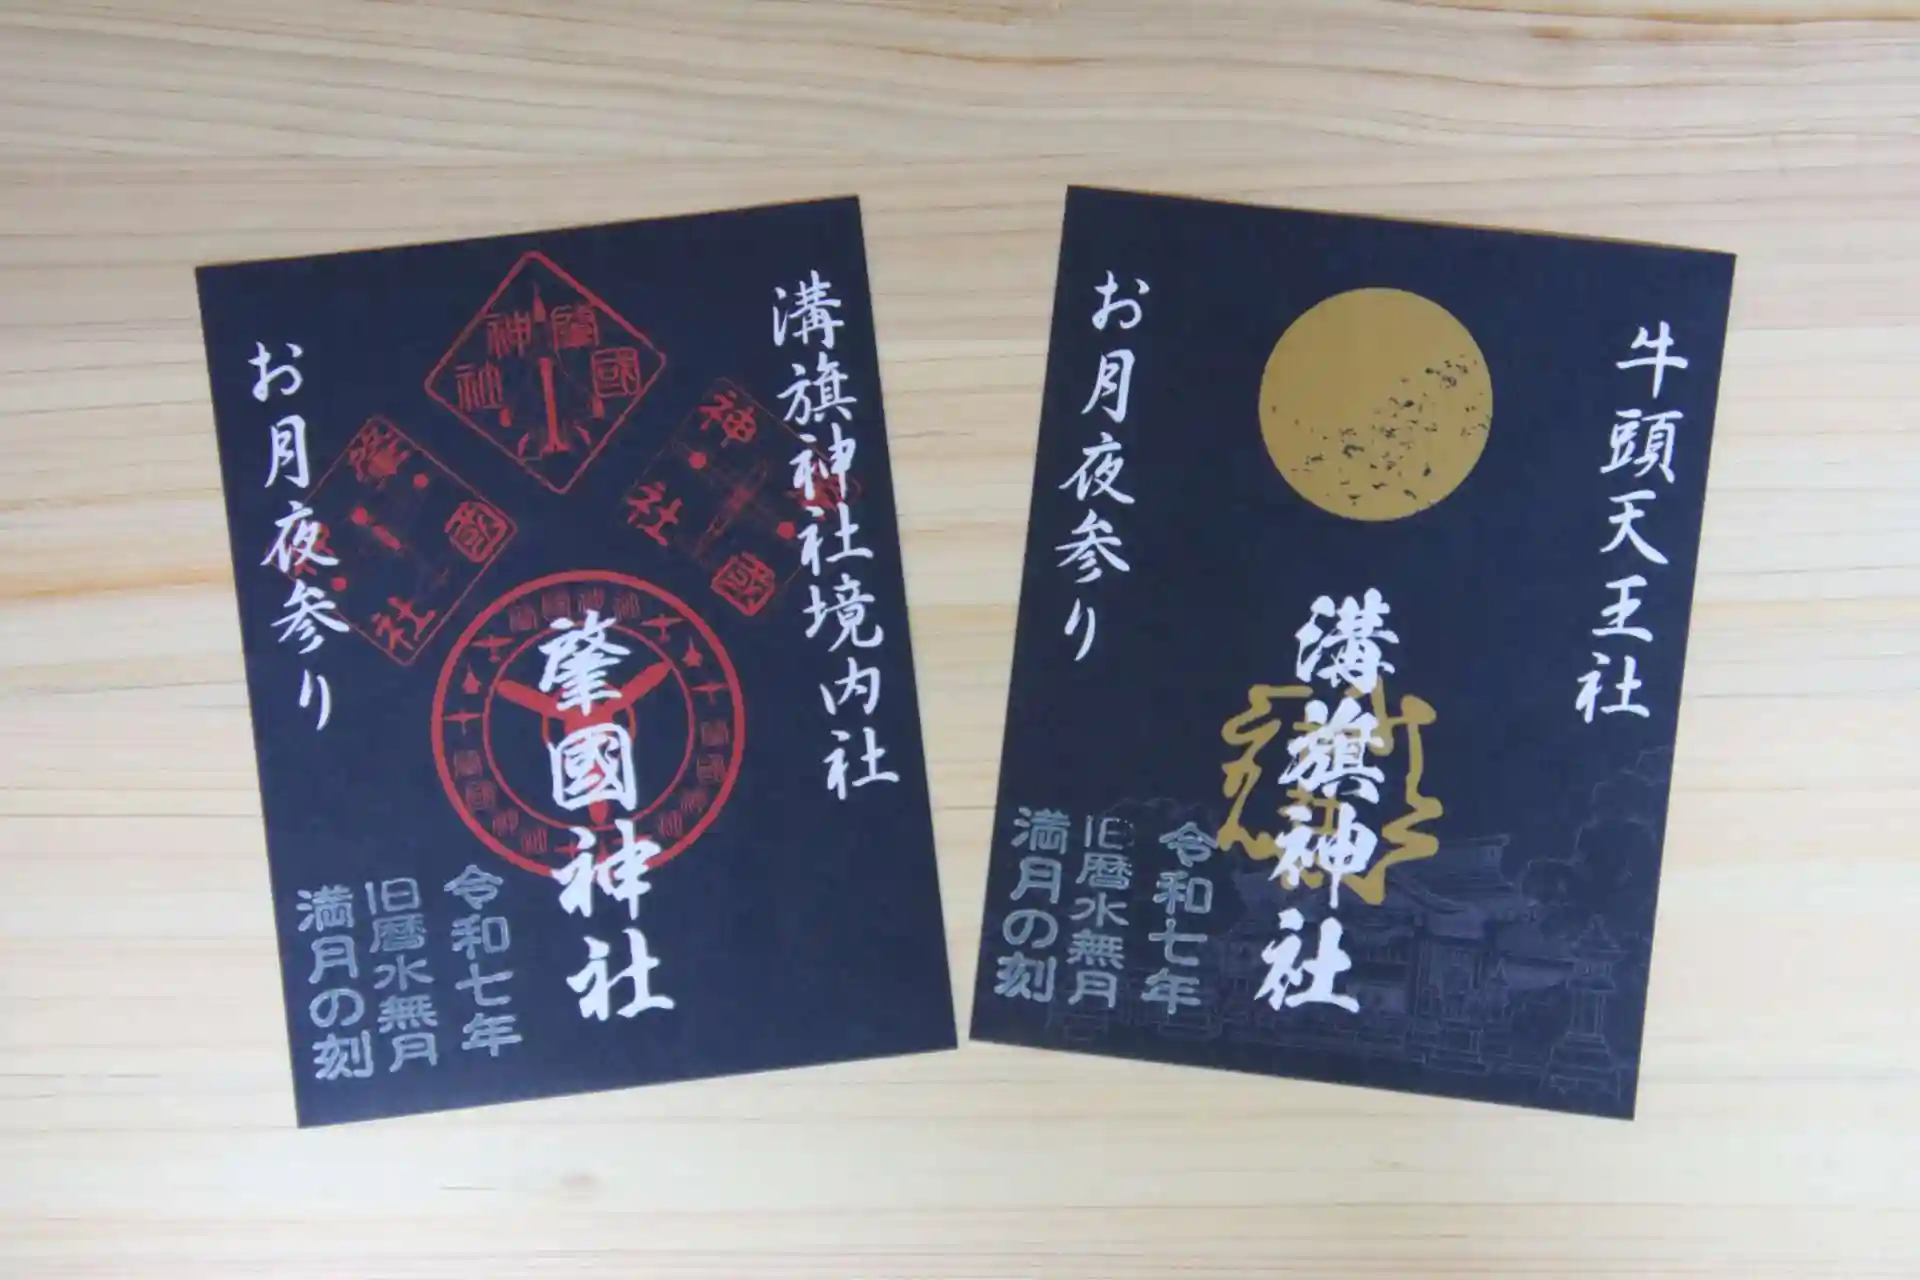 溝旗神社境内社
肇國神社
お月夜参り
令和七年
旧暦水無月
満月の刻
肇國神社
神社
國
社
牛頭天王社
溝旗神社
お月夜参り
令和七年
旧暦水無月
満月の刻